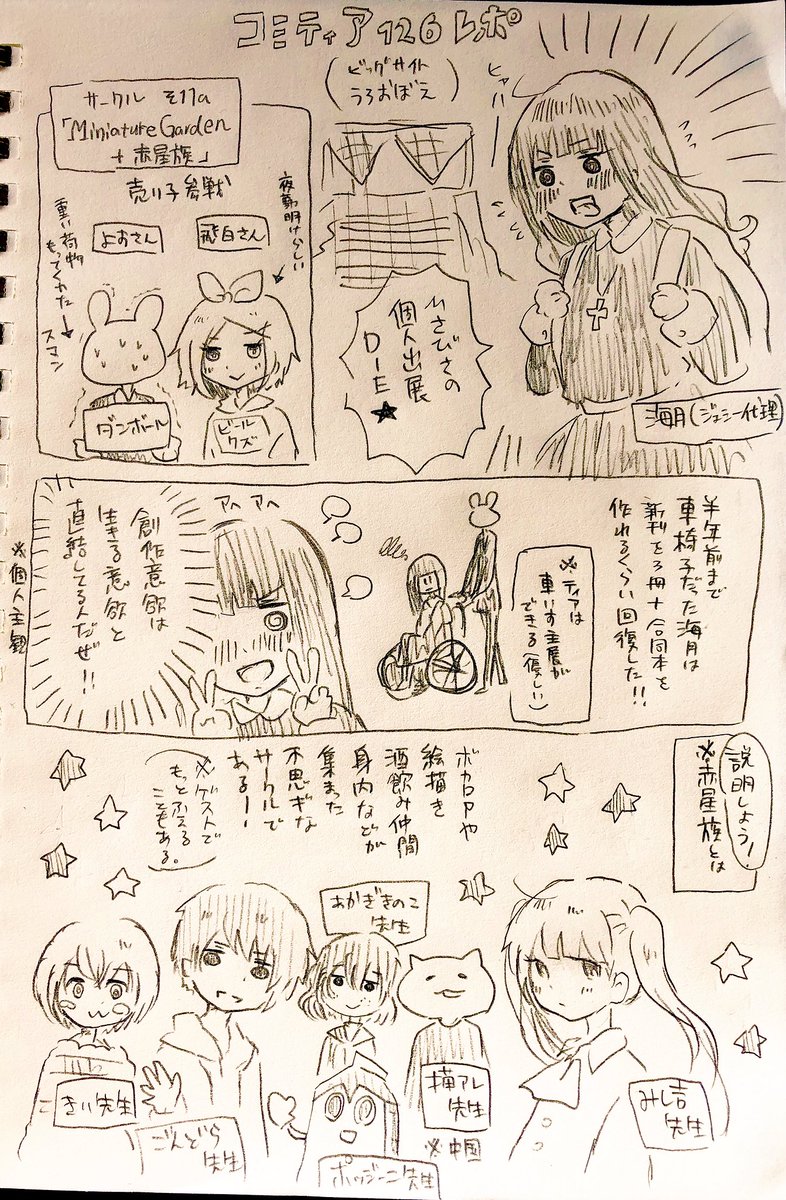 コミティア126レポ
(ビッグサイト
うろおぼえ)
ヒャハー
サークル そ17a
「Miniature Garden
+赤星族」
売り子参戦
夜勤明けらしい
飛白さん
よおさん
重い荷物
もってくれた
スマン
ダンボール
ビール
クズ
ひさびさの
個人出展
DIE★
海月(ジェシー代理)
半年前まで
車椅子だった海月は
新刊を3冊+合同本を
作れるくらい回復した!!
※ティアは
車いす出展が
できる(優しい)
アヘアヘ
創作意欲は
生きる意欲と
直結してる人だぜ!!
※個人主観
説明しよう!
※赤星族とは
ボカロPや
絵描き
酒飲み仲間
身内などが
集まった
不思ギな
サークルで
あるー!
※ゲストで
もっとふえる
こともある。
みし吉
先生
猫アレ
先生
※中国
あかぎきのこ
先生
ポッジーニ先生
ごんどら
先生
きい先生